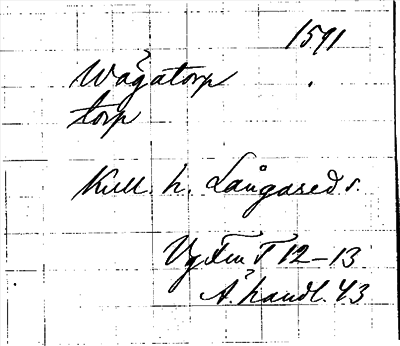 1591
Wågatorp
torp
Kull. h. Långared s.
Vg Fru T 12-13
Ä. handl. 43